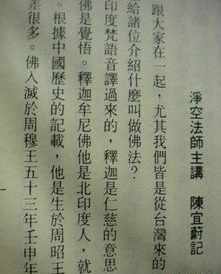 淨空法師主講　陳宜蔚記
跟大家在一起，尤其我們皆是從台灣來的
給諸位介紹什麼叫做佛法？
印度梵語音譯過來的，釋迦是仁慈的意思
佛是覺悟。釋迦牟尼佛他是北印度人，就
。根據中國歷史的記載，他是生於周昭王
異很多。佛入滅於周穆王五十三年壬申年